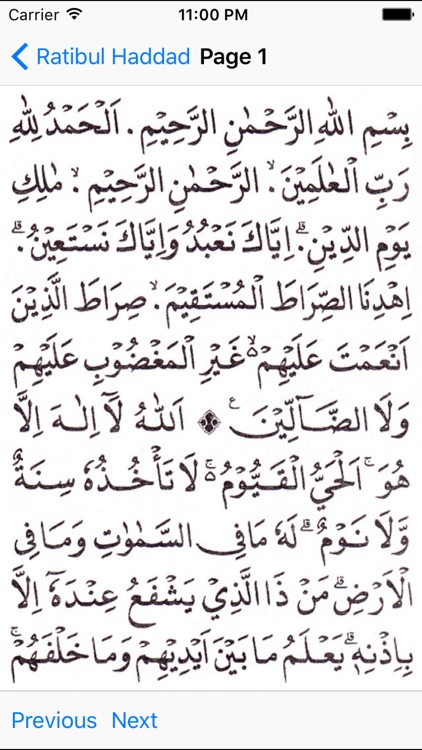 Carrier 11:00 PM
Ratibul Haddad Page 1
بِسْمِ اللهِ الرَّحْمٰنِ الرَّحِيْمِ. اَلْحَمْدُ لِلّٰهِ
رَبِّ الْعٰلَمِيْنَ ۙ. الرَّحْمٰنِ الرَّحِيْمِ ۙ. مٰلِكِ
يَوْمِ الدِّيْنِ ۗ. اِيَّاكَ نَعْبُدُ وَاِيَّاكَ نَسْتَعِيْنُ ۗ.
اِهْدِنَا الصِّرَاطَ الْمُسْتَقِيْمَ ۙ. صِرَاطَ الَّذِيْنَ
اَنْعَمْتَ عَلَيْهِمْ ەۙ غَيْرِ الْمَغْضُوْبِ عَلَيْهِمْ
وَلَا الضَّآلِّيْنَ ع ۞ اَللهُ لَآ اِلٰهَ اِلَّا
هُوَ ۚ اَلْحَيُّ الْقَيُّوْمُ ەۚ لَا تَأْخُذُهٗ سِنَةٌ
وَّلَا نَوْمٌ ۗ لَهٗ مَا فِى السَّمٰوٰتِ وَمَا فِى
الْاَرْضِ ۗ مَنْ ذَا الَّذِيْ يَشْفَعُ عِنْدَهٗٓ اِلَّا
بِاِذْنِهٖ ۗ يَعْلَمُ مَا بَيْنَ اَيْدِيْهِمْ وَمَا خَلْفَهُمْ ۚ
Previous Next